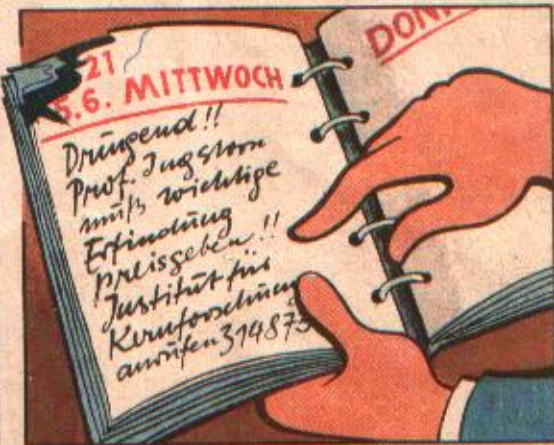 21
5.6. MITTWOCH
Dringend!!
Prof. Ingstorn
muß wichtige
Erfindung
preisgeben!!
Institut für
Kernforschung
anrufen 314875